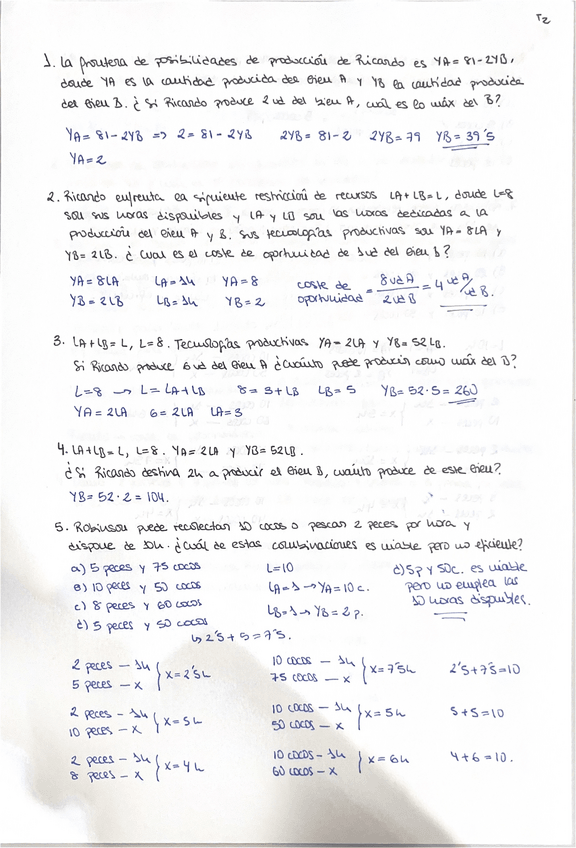 T2
1. La frontera de posibilidades de producción de Ricardo es YA = 81 - 2YB,
donde YA es la cantidad producida del bien A y YB la cantidad producida
del bien B. ¿ Si Ricardo produce 2 ud del bien A, cuál es lo máx del B?
YA = 81 - 2YB => 2 = 81 - 2YB 2YB = 81 - 2 2YB = 79 YB = 39'5
YA = 2
2. Ricardo enfrenta la siguiente restricción de recursos LA + LB = L, donde L=8
son sus horas disponibles y LA y LB son las horas dedicadas a la
producción del bien A y B. Sus tecnologías productivas son YA = 8LA y
YB = 2LB. ¿ Cual es el coste de oportunidad de 1ud del bien b?
YA = 8LA LA = 1h YA = 8 coste de oportunidad = 8 ud A / 2 ud B = 4 ud A / ud B.
YB = 2LB LB = 1h YB = 2
3. LA + LB = L, L=8. Tecnologías productivas YA = 2LA y YB = 52LB.
Si Ricardo produce 6 ud del bien A ¿Cuánto puede producir como máx del B?
L=8 → L = LA + LB 8 = 3 + LB LB = 5 YB = 52·5 = 260
YA = 2LA 6 = 2LA LA = 3
4. LA + LB = L, L=8. YA = 2LA y YB = 52LB.
¿ Si Ricardo destina 2h a producir el bien B, cuánto produce de este bien?
YB = 52 · 2 = 104.
5. Robinson puede recolectar 10 cocos o pescar 2 peces por hora y
dispone de 10h. ¿Cuál de estas combinaciones es viable pero no eficiente?
a) 5 peces y 75 cocos L=10 d) 5p y 50c. es viable
b) 10 peces y 50 cocos LA = 1 → YA = 10 c. pero no emplea las
c) 8 peces y 60 cocos LB = 1 → YB = 2 p. 10 horas disponibles.
d) 5 peces y 50 cocos
↳ 2'5 + 5 = 7'5.
2 peces — 1h } x = 2'5h 10 cocos — 1h } x = 7'5h 2'5 + 7'5 = 10
5 peces — x 75 cocos — x
2 peces — 1h } x = 5h 10 cocos — 1h } x = 5h 5 + 5 = 10
10 peces — x 50 cocos — x
2 peces — 1h } x = 4h 10 cocos — 1h } x = 6h 4 + 6 = 10.
8 peces — x 60 cocos — x